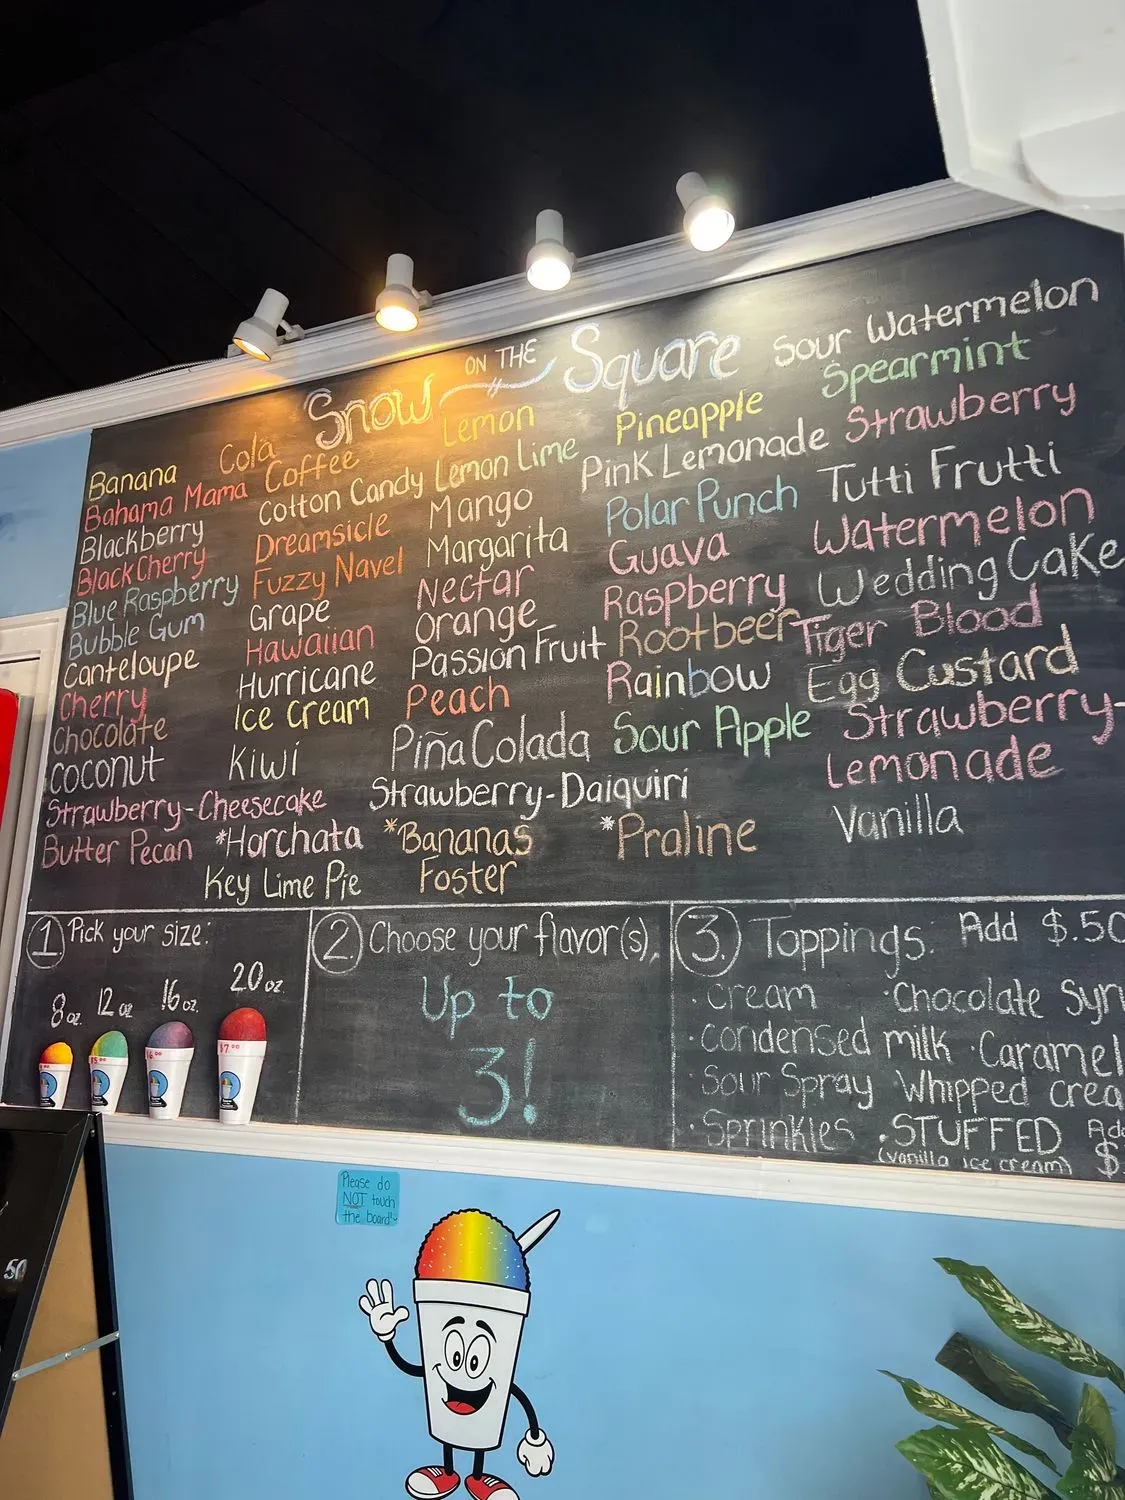 Snow ON THE Square
Banana
Bahama Mama
Blackberry
Black Cherry
Blue Raspberry
Bubble Gum
Canteloupe
Cherry
Chocolate
Coconut
Strawberry-Cheesecake
Butter Pecan
Cola
Coffee
Cotton Candy
Dreamsicle
Fuzzy Navel
Grape
Hawaiian
Hurricane
Ice Cream
Kiwi
*Horchata
Key Lime Pie
Lemon
Lemon Lime
Mango
Margarita
Nectar
Orange
Passion Fruit
Peach
Piña Colada
Strawberry-Daiquiri
*Bananas
Foster
Pineapple
Pink Lemonade
Polar Punch
Guava
Raspberry
Rootbeer
Rainbow
Sour Apple
*Praline
Sour Watermelon
Spearmint
Strawberry
Tutti Frutti
Watermelon
Wedding Cake
Tiger Blood
Egg Custard
Strawberry-
Lemonade
Vanilla
1 Pick your size:
8 oz. 12 oz 16 oz. 20 oz.
$5.00 $6.00 $7.00
2. Choose your flavor(s).
Up to
3!
3. Toppings. Add $.50
· Cream · Chocolate Syr
· Condensed milk · Caramel
· Sour Spray · Whipped Crea
· Sprinkles · STUFFED Add
(vanilla ice cream) $
Please do
NOT touch
the board
50